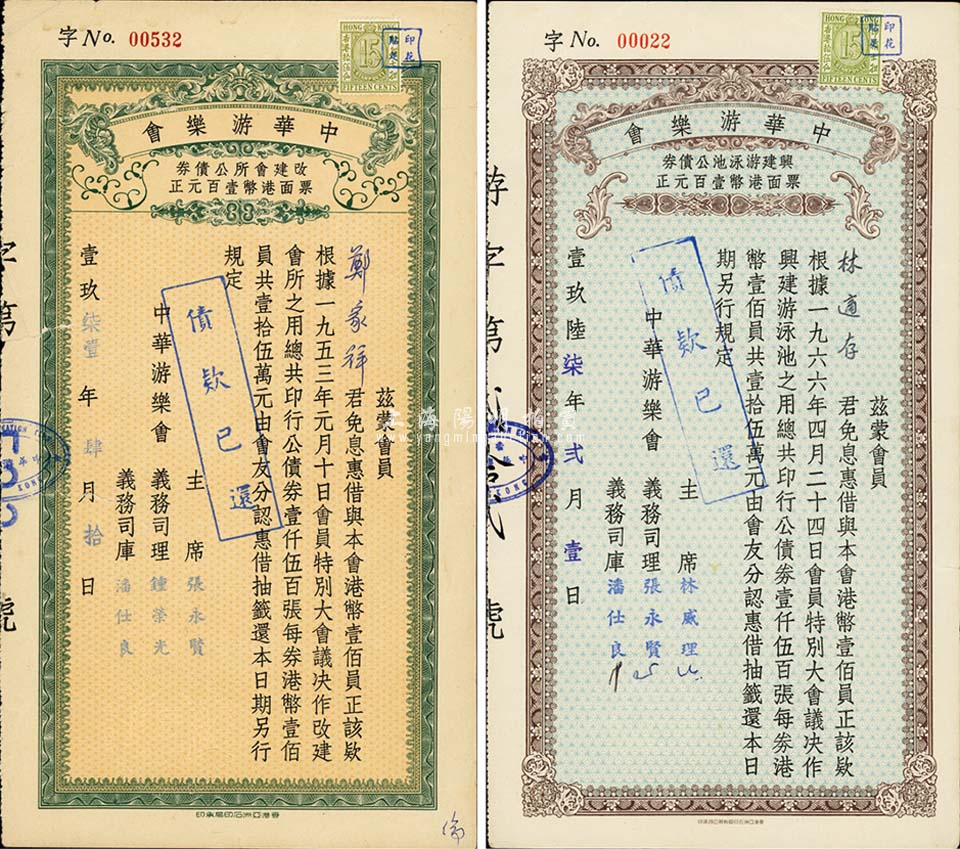 字 No. 00532
HONG KONG
15
FIFTEEN CENTS
印花
會樂游華中
券債公所會建改
正元百壹幣港面票
茲蒙會員
鄭家祥 君免息惠借與本會港幣壹佰員正該款
根據一九五三年元月十日會員特別大會議决作改建
會所之用總共印行公債券壹仟伍百張每券港幣壹佰
員共壹拾伍萬元由會友分認惠借抽籤還本日期另行
規定
債欵已還
中華游樂會 主席 張永賢
義務司理 鍾榮光
義務司庫 潘仕良
壹玖柒壹年肆月拾日
字第
號
印承局印石洲亞港香
字 No. 00022
HONG KONG
15
FIFTEEN CENTS
印花
會樂游華中
券債公池泳游建興
正元百壹幣港面票
茲蒙會員
林適存 君免息惠借與本會港幣壹佰員正該欵
根據一九六六年四月二十四日會員特別大會議决作
興建游泳池之用總共印行公債券壹仟伍百張每券港
幣壹佰員共壹拾伍萬元由會友分認惠借抽籤還本日
期另行規定
債欵已還
中華游樂會 主席 林威理
義務司理 張永賢
義務司庫 潘仕良
壹玖陸柒年貳月壹日
游字第
號